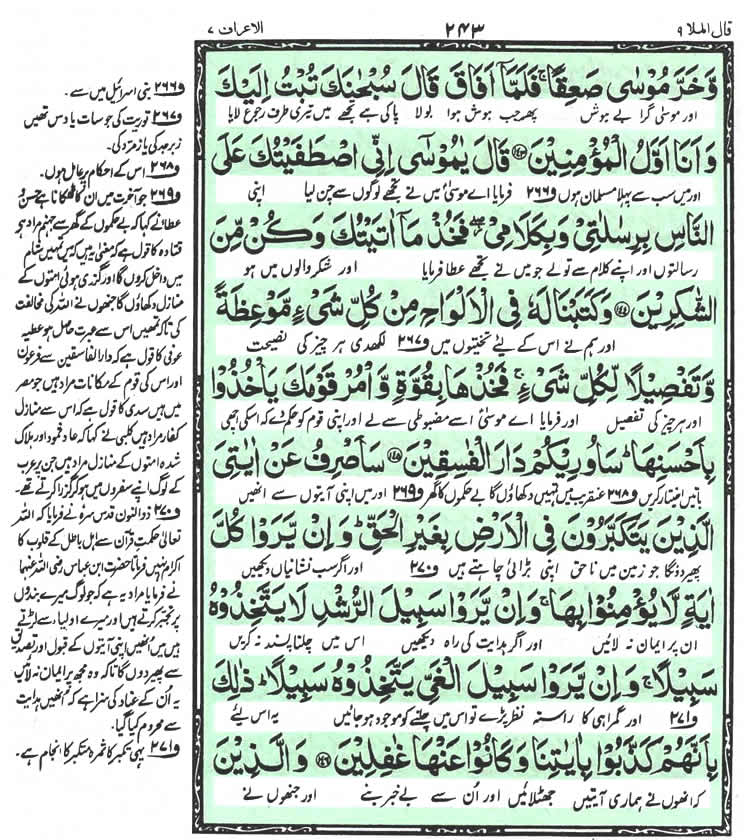 قال الملا ۹
۲۴۳
الاعراف ۷
وَّخَرَّ مُوْسٰى صَعِقًا ۚ فَلَمَّاۤ اَفَاقَ قَالَ سُبْحٰنَكَ تُبْتُ اِلَيْكَ
اور موسٰی گرا بے ہوش پھر جب ہوش ہوا بولا پاکی ہے تجھے میں تیری طرف رجوع لایا
وَ اَنَا اَوَّلُ الْمُؤْمِنِيْنَ ﴿۱۴۳﴾ قَالَ يٰمُوْسٰۤى اِنِّى اصْطَفَيْتُكَ عَلَى
اور میں سب سے پہلا مسلمان ہوں ف۲۶۶ فرمایا اے موسٰی میں نے تجھے لوگوں سے چن لیا اپنی
النَّاسِ بِرِسٰلٰتِىْ وَ بِكَلَامِىْ ۖ فَخُذْ مَاۤ اٰتَيْتُكَ وَ كُنْ مِّنَ
رسالتوں اور اپنے کلام سے تو لے جو میں نے تجھے عطا فرمایا اور شکر والوں میں ہو
الشّٰكِرِيْنَ ﴿۱۴۴﴾ وَ كَتَبْنَا لَهٗ فِى الْاَلْوَاحِ مِنْ كُلِّ شَىْءٍ مَّوْعِظَةً
اور ہم نے اس کے لیے تختیوں میں ف۲۶۷ لکھدی ہر چیز کی نصیحت
وَّ تَفْصِيْلًا لِّكُلِّ شَىْءٍ ۚ فَخُذْهَا بِقُوَّةٍ وَّ اْمُرْ قَوْمَكَ يَاْخُذُوْا
اور ہر چیز کی تفصیل اور فرمایا اے موسٰی اسے مضبوطی سے لے اور اپنی قوم کو حکم دے کہ اسکی اچھی
بِاَحْسَنِهَا ؕ سَاُورِيْكُمْ دَارَ الْفٰسِقِيْنَ ﴿۱۴۵﴾ سَاَصْرِفُ عَنْ اٰيٰتِىَ
باتیں اختیار کریں ف۲۶۸ عنقریب میں تمہیں دکھاؤں گا بے حکموں کا گھر ف۲۶۹ اور میں اپنی آیتوں سے انھیں
الَّذِيْنَ يَتَكَبَّرُوْنَ فِى الْاَرْضِ بِغَيْرِ الْحَقِّ ؕ وَ اِنْ يَّرَوْا كُلَّ
پھیر دوں گا جو زمین میں ناحق اپنی بڑائی چاہتے ہیں ف۲۷۰ اور اگر سب نشانیاں دیکھیں
اٰيَةٍ لَّا يُؤْمِنُوْا بِهَا ۚ وَ اِنْ يَّرَوْا سَبِيْلَ الرُّشْدِ لَا يَتَّخِذُوْهُ
ان پر ایمان نہ لائیں اور اگر ہدایت کی راہ دیکھیں اس میں چلنا پسند نہ کریں
سَبِيْلًا ۚ وَ اِنْ يَّرَوْا سَبِيْلَ الْغَىِّ يَتَّخِذُوْهُ سَبِيْلًا ؕ ذٰلِكَ
ف۲۷۱ اور گمراہی کا راستہ نظر پڑے تو اس میں چلنے کو موجود ہو جائیں یہ اس لیے
بِاَنَّهُمْ كَذَّبُوْا بِاٰيٰتِنَا وَ كَانُوْا عَنْهَا غٰفِلِيْنَ ﴿۱۴۶﴾ وَ الَّذِيْنَ
کہ انھوں نے ہماری آیتیں جھٹلائیں اور اُن سے بے خبر بنے اور جنھوں نے
ف۲۶۶ بنی اسرائیل میں سے۔
ف۲۶۷ توریت کی جو سات یا دس تھیں
زبرجد کی یا زمرد کی۔
ف۲۶۸ اس کے احکام پر عامل ہوں۔
ف۲۶۹ جو آخرت میں ان کا ٹھکانا ہے حسن و
عطا نے کہا کہ بے حکموں کے گھر سے جہنم مراد ہے
قتادہ کا قول ہے کہ معنٰی یہ ہیں کہ میں تمہیں شام
میں داخل کروں گا اور گذری ہوئی امتوں کے
منازل دکھاؤں گا جنھوں نے اللہ کی مخالفت
کی تاکہ تمھیں اس سے عبرت حاصل ہو عطیہ
عوفی کا قول ہے کہ دار الفاسقین سے فرعون
اور اس کی قوم کے مکانات مراد ہیں جو مصر
میں ہیں سدی کا قول ہے کہ اس سے منازل
کفار مراد ہیں کلبی نے کہا کہ عاد و ثمود اور ہلاک
شدہ امتوں کے منازل مراد ہیں جن پر عرب
کے لوگ اپنے سفروں میں ہو کر گزرا کرتے تھے۔
ف۲۷۰ ذوالنون قدس سرہ نے فرمایا کہ اللہ
تعالٰی حکمت قرآن سے اہل باطل کے قلوب کا
اکرام نہیں فرماتا حضرت ابن عباس رضی اللہ عنہما
نے فرمایا مراد یہ ہے کہ جو لوگ میرے بندوں
پر تجبر کرتے ہیں اور میرے اولیاء سے لڑتے
ہیں میں انھیں اپنی آیتوں کے قبول اور تصدیق
سے پھیر دوں گا تاکہ وہ مجھ پر ایمان نہ لائیں
یہ اُن کے عناد کی سزا ہے کہ انھیں ہدایت
سے محروم کیا گیا۔
ف۲۷۱ یہی تکبر کا ثمرہ متکبر کا انجام ہے۔